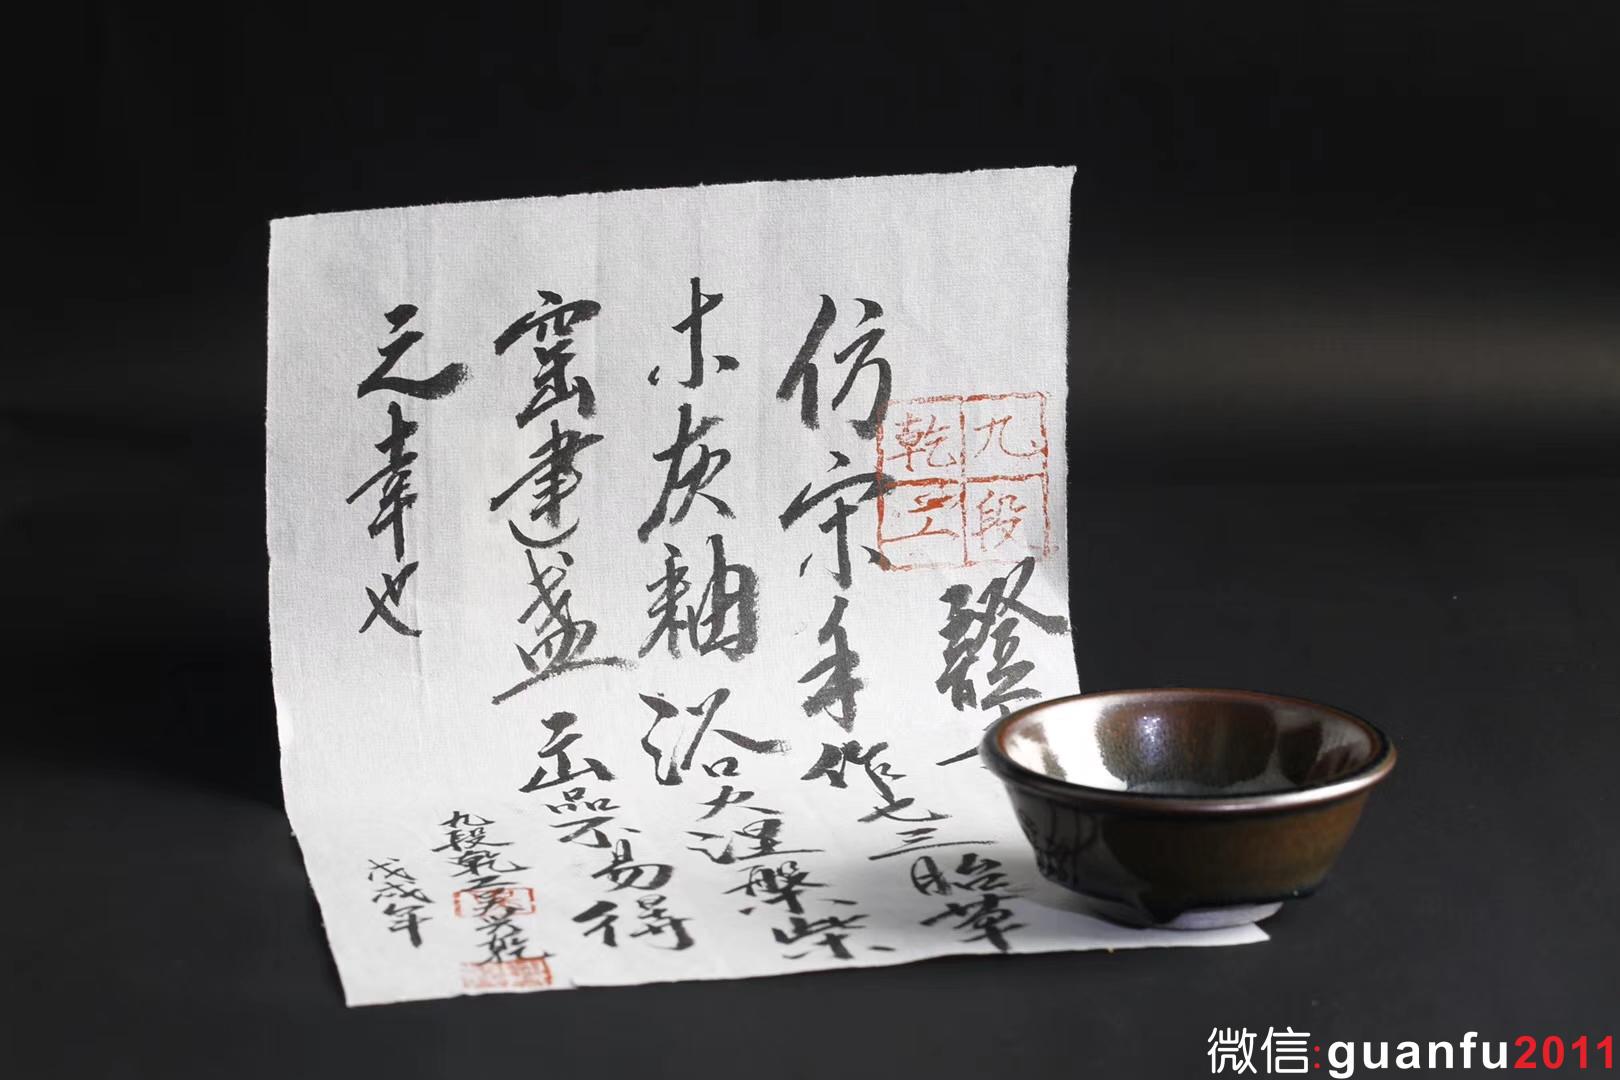 九段乾工
仿宋手作七三胎草
木灰釉浴火涅槃柴
窑建盏出品不易得
元幸也
九段乾工
戊戌年
微信:guanfu2011